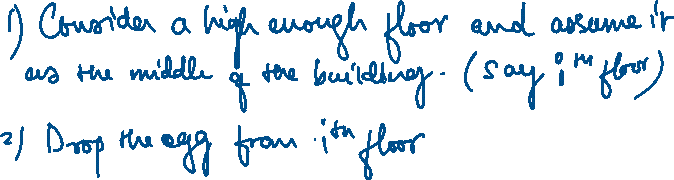 1) Consider a high enough floor and assume it
as the middle of the building. (say i th floor)
2) Drop the egg from ith floor